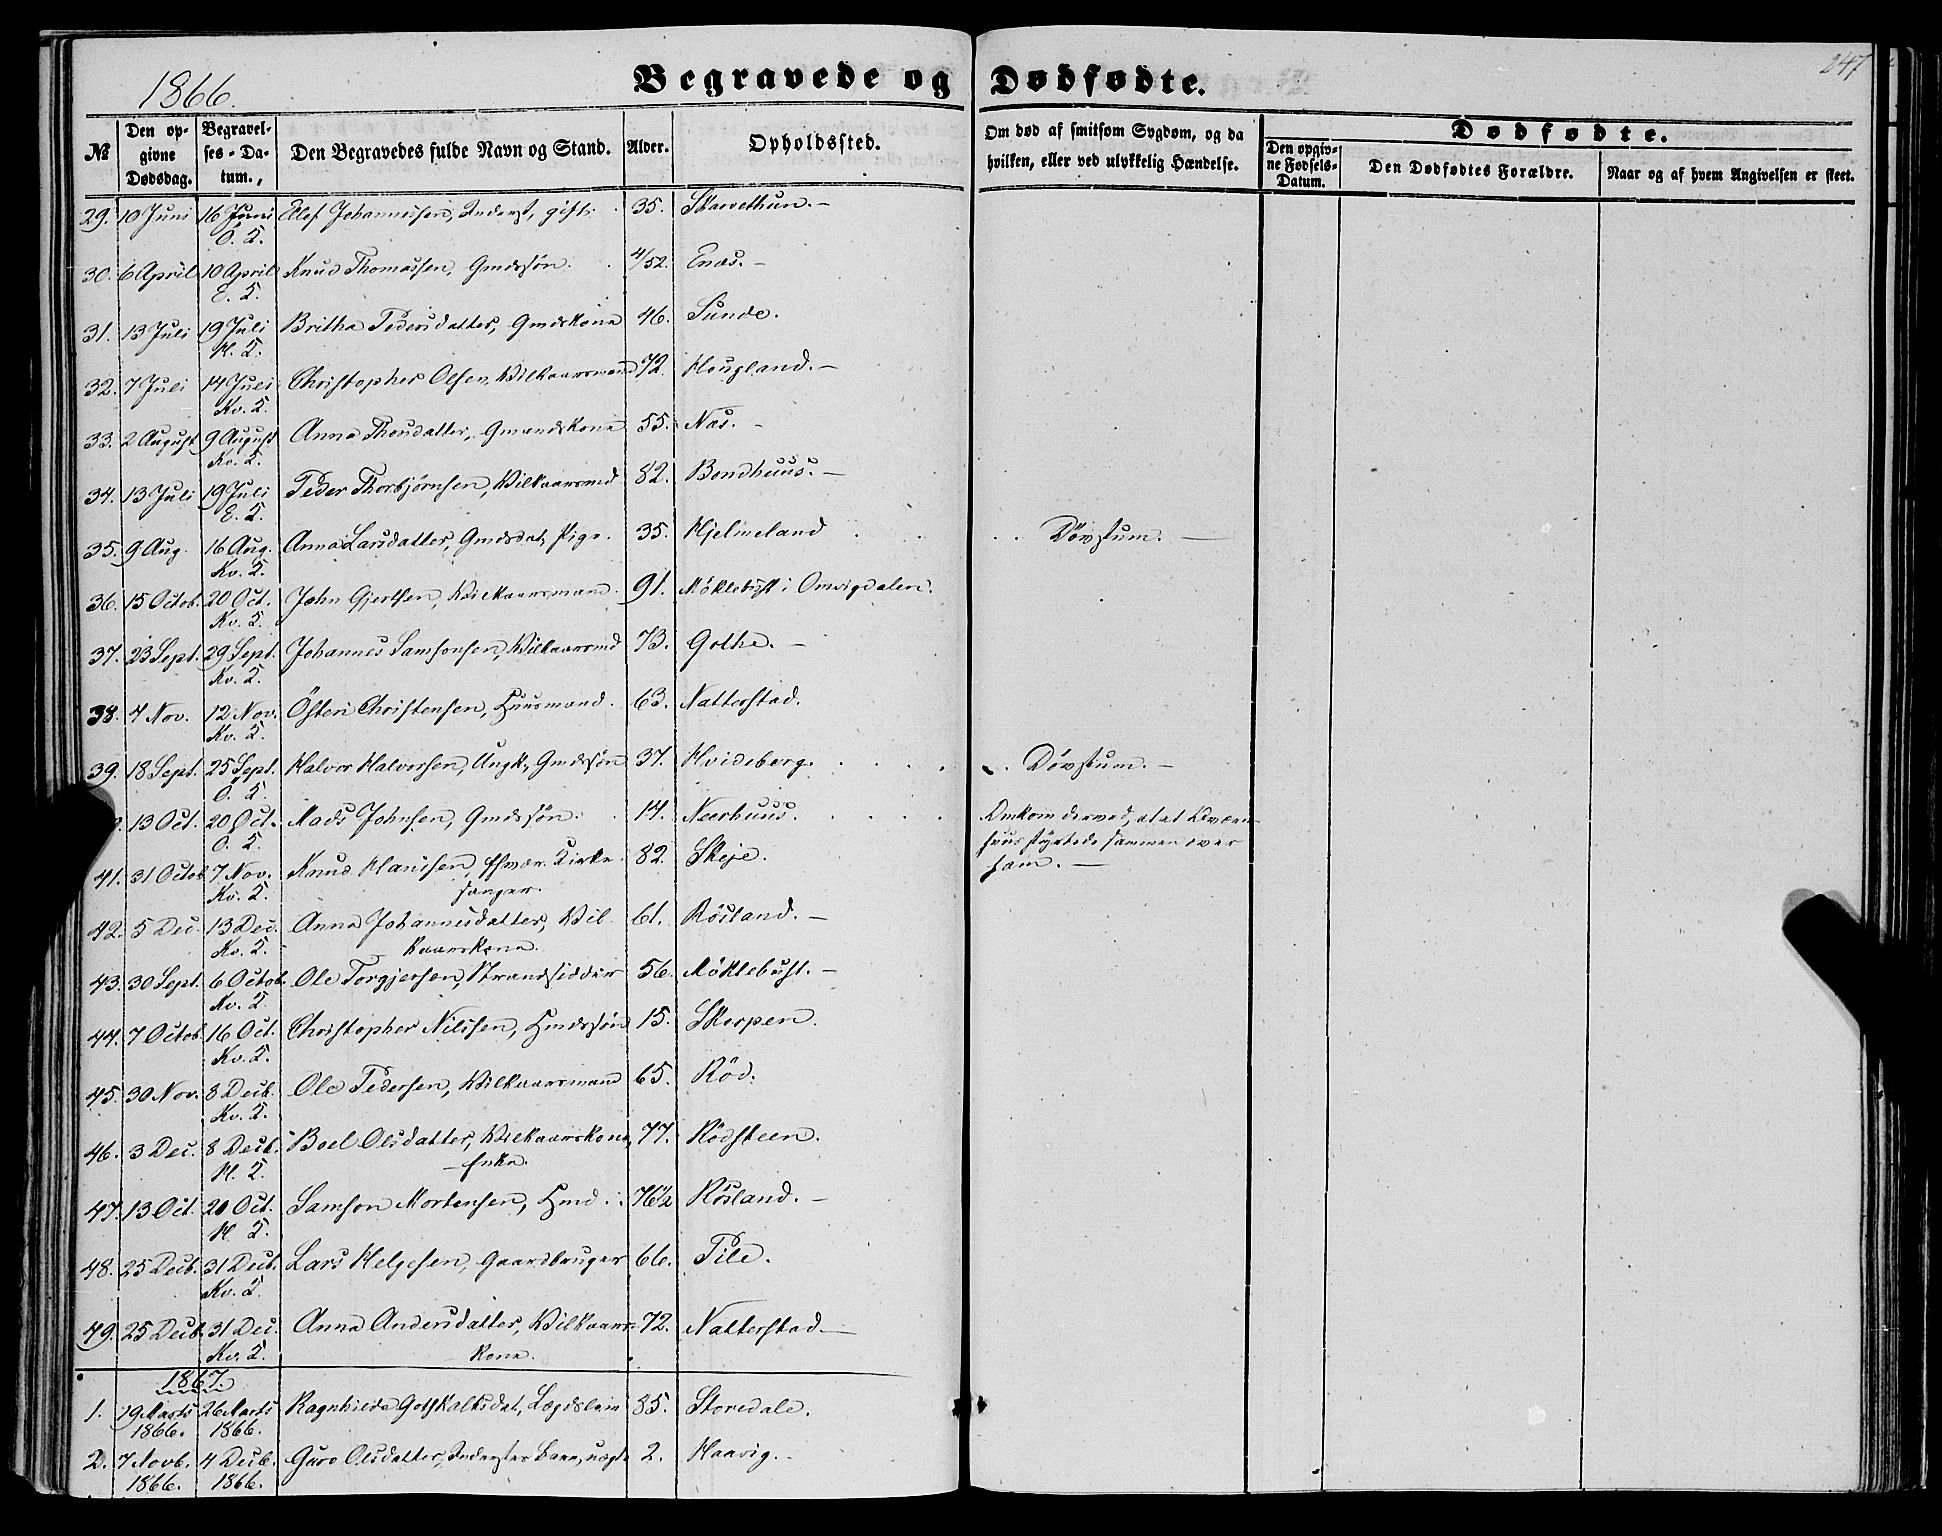 1866.
Begravede og Dødfødte.
247
№
Den opgivne Dødsdag.
Begravelses-Datum.,
Den Begravedes fulde Navn og Stand.
Alder.
Opholdssted.
Om død af smitsom Sygdom, og da hvilken, eller ved ulykkelig Hændelse.
Dødfødte.
Den opgivne Fødsels-Datum.
Den Dødfødtes Forældre.
Naar og af hvem Angivelsen er skeet.
29. 10 Juni 16 Juni Elef Johannessen, Inderst, gift. 35. Skarvethun.-
Ö. K.
30. 6 April 10 April Knud Thomassen, Gmdssön. 4/52. Enæs.-
E. K.
31. 13 Juli 19 Juli Britha Pedersdatter, Gmdskone 46. Sunde.
H. K.
32. 7 Juli 14 Juli Christopher Olsen, Vilkaarsmand 72. Hougland.-
Kv. K.
33. 2 August 9 August Anna Thorsdatter, Gmandskone 55. Næs.-
Kv. K.
34. 13 Juli 19 Juli Peder Thorbjörnsen, Vilkaarsmd 82. Bondhuus.-
E. K.
35. 9 Aug. 16 Aug. Anna Larsdatter, Gmdsdat, Pige. 35. Hjelmeland . . . . Dövstum.-
Kv. K.
36. 15 Octob. 20 Oct. John Gjertsen, Vilkaarsmand. 91. Möklebust i Omvigdalen.
Kv. K.
37. 23 Sept. 29 Sept. Johannes Samsonsen, Vilkaarsmd 73. Gothe.-
Kv. K.
38. 4 Nov. 12 Nov. Östen Christensen, Huusmand. 63. Natterstad.
Kv. K.
39. 18 Sept. 25 Sept. Halvor Halvorsen, Ungk., Gmdssön 37. Hvideberg. . . . . Dövstum.-
Ö. K.
13 Oct. 20 Oct. Mads Johnsen, Gmdssön. 14. Neerhuus. . . . Omkom derved, at et Kværn-
Ö. K. huus styrtede sammen over
41. 31 Octob 7 Nov. Knud Hansen, Kirke- 82. Skeje. ham.-
Kv. K. sanger.
42. 5 Dec. 13 Dec. Anna Johannesdatter, Vil- 61. Rösland.-
Kv. K. kaarskone.
43. 30 Sept. 6 Octob. Ole Torgjersen, Strandsidder 56. Möklebust.-
Kv. K.
44. 7 Octob. 16 Oct. Christopher Nilssen, Hmdssön 15. Skorpen.
Kv. K.
45. 30 Nov. 8 Decb. Ole Pedersen, Vilkaarsmand 65. Röd.
Kv. K.
46. 3 Dec. 8 Decb. Boel Olsdatter, Vilkaarskone, 77. Rödsteen.
H. K. -Enke.
47. 13 Oct. 20 Oct. Samson Mortensen, Hmd. 76½ Rösland.-
H. K.
48. 25 Decb. 31 Decb. Lars Helgesen, Gaardbruger 66. Pile.
Kv. K.
49. 25 Decb. 31 Dec. Anna Andersdatter, Vilkaars- 72. Natterstad.-
Kv. K. kone.
1867.
1. 19 Marts 26 Marts Ragnhilda Gotskalksdat, Lægdslem 85. Storedale.
1866. 1866.
2. 7 Novb. 4 Decb. Guro Olsdatter, Inderstes Barn, uægte 2. Haavig.-
1866. 1866.